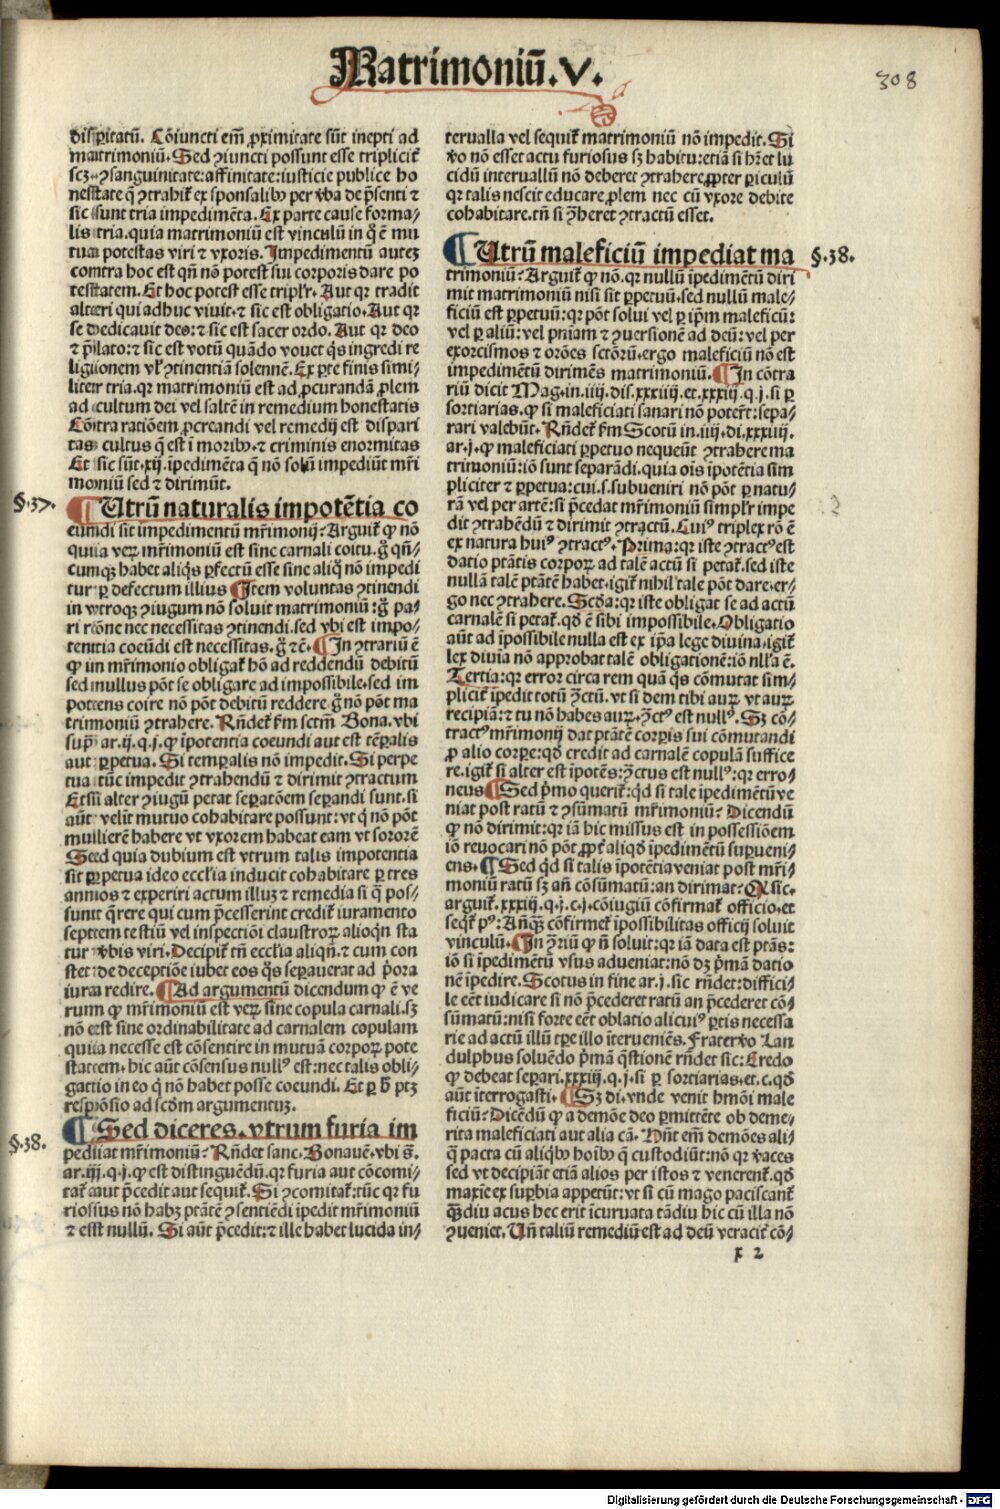 Matrimoniū.V.
308
disparitatū. Cōiuncti em̄ ꝓximitate sūt inepti ad
matrimoniū. Sed ꝯiuncti possunt esse triplicit᷑
scꝫ ꝯsanguinitate: affinitate: iusticie publice ho
nestate q̄ ꝯtrahit᷑ ex sponsalibꝰ per v̄ba de p̄senti ⁊
sic sunt tria impedimēta. Ex parte cause forma⸗
lis tria. quia matrimoniū est vinculū in q̊ ē mu
tua potestas viri ⁊ vxoris. Impedimentū autez
contra hoc est qn̄ nō potest sui corporis dare po
testatem. Et hoc potest esse tripl'r. Aut qꝛ tradit
alteri qui adhuc viuit. ⁊ sic est obligatio. Aut qꝛ
se dedicauit deo: ⁊ sic est sacer ordo. Aut qꝛ deo
⁊ p̄lato: ⁊ sic est votū quādo vouet q̇s ingredi re
ligionem vl' ꝯtinentiā solennē. Ex pte finis simi⸗
liter tria. qꝛ matrimoniū est ad ꝓcurandā ꝓlem
ad cultum dei vel saltē in remedium honestatis
Cōtra ratiōem ꝓcreandi vel remedij est dispari
tas cultus q̄ est ī moribꝰ. ⁊ criminis enormitas
Et sic sūt .xij. īpedimēta q̄ nō solū impediūt mr̄i
moniū sed ⁊ dirimūt.
§.37.
¶ Utrū naturalis impotētia co
eundi sit impedimentū mr̄imonij? Arguit᷑ ꝙ nō
quia veꝝ mr̄imoniū est sine carnali coitu. g̊ qn̄⸗
cumqꝫ habet aliq̇s ꝑfectū esse sine aliq̊ nō impedi
tur ꝑ defectum illius ¶ Item voluntas ꝯtinendi
in vtroqꝫ ꝯiugum nō soluit matrimoniū: g̊ pa⸗
ri rōne nec necessitas ꝯtinendi. sed vbi est impo⸗
tentia coeūdi est necessitas. g̊ ⁊c̄. ¶ In ꝯtrariū ē
ꝙ in mr̄imonio obligat᷑ hō ad reddendū debitū
sed nullus pōt se obligare ad impossibile. sed im
potens coire nō pōt debitū reddere g̊ nō pōt ma
trimoniū ꝯtrahere. Rn̄det᷑ fm sctm̄ Bona. vbi
sup̄ ar.ij.q.j. ꝙ īpotentia coeundi aut est tēꝑalis
aut ꝑpetua. Si temꝑalis nō impedit. Si perpe
tua tūc impedit ꝯtrahendū ⁊ dirimit ꝯtractum
Et si alter ꝯiugū petat seꝑatōem seꝑandi sunt. si
aūt velīt mutuo cohabitare possunt: vt q̄ nō pōt
mulierē habere vt vxorem habeat eam vt sororē
Sed quia dubium est vtrum talis impotentia
sit ꝑpetua ideo eccl'ia inducit cohabitare ꝑ tres
annos ⁊ experiri actum illuꝫ ⁊ remedia si q̄ pos⸗
sunt q̄rere qui cum p̄cesserint credit᷑ iuramento
septem testiū vel inspectiōi claustroꝝ alioqn̄ sta
tur v̄bis viri. Decipit᷑ tn̄ eccl'ia aliqn̄. ⁊ cum con
stet de deceptiōe iubet eos q̇s seꝑauerat ad p̄ora
iura redire. ¶ Ad argumentū dicendum ꝙ ē ve
rum ꝙ mr̄imoniū est veꝝ sine copula carnali. sꝫ
nō est sine ordinabilitate ad carnalem copulam
quia necesse est cōsentire in mutuā corpoꝝ pote
statem. hic aūt cōsensus nullꝰ est: nec talis obli⸗
gatio in eo q̄ nō habet posse coeundi. Et ꝑ h̄ ptꝫ
responsio ad scdm argumentuꝫ.
§.38.
¶ Sed diceres. vtrum furia im
pediat mr̄imoniū? Rn̄det sanc. Bonauē. vbi s̄.
ar.iij.q.j. ꝙ est distinguēdū. qꝛ furia aut cōcomi⸗
tat᷑ aut p̄cedit aut sequit᷑. Si ꝯcomitat᷑: tūc qꝛ fu
riosius nō habꝫ ptātē ꝯsentiēdi īpedit mr̄imoniū
⁊ est nullū. Si aūt p̄cedit: ⁊ ille habet lucida in⸗
terualla vel sequit᷑ matrimoniū nō impedit. Si
v̊o nō esset actu furiosus sꝫ habitu: etiā si hr̄et lu
cidū interuallū nō deberet ꝯtrahere ꝓpter ꝑiculū
qꝛ talis nescit educare ꝓlem nec cū vxore debite
cohabitare. tn̄ si ꝯ̄heret ꝯtractū esset.
¶ Utrū maleficiū impediat ma
§.38.
trimoniū? Arguit᷑ ꝙ nō. qꝛ nullū īpedimētū diri
mit matrimoniū nisi sit ꝑpetuū. sed nullū male⸗
ficiū est ꝑpetuū: qꝛ pōt solui vel ꝑ ip̄m maleficiū:
vel ꝑ aliū: vel pn̄iam ⁊ ꝯuersionē ad deū: vel per
exorcismos ⁊ orōes sctōrū. ergo maleficiū nō est
impedimētū dirimēs matrimoniū. ¶ In cōtra
riū dicit Mag. in .iiij. dis.xxxiiij. et .xxxiij.q.j. si ꝑ
sortiarias. ꝙ si maleficiati sanari nō poter̄t: sepa⸗
rari valebūt. Rn̄det᷑ fm Scotū in .iiij. di.xxxiiij.
ar.j. ꝙ maleficiati ꝑpetuo nequeūt ꝯtrahere ma
trimoniū: iō sunt separādi. quia oīs īpotētia sim
pliciter ⁊ ꝑpetua: cui .s. subueniri nō pōt ꝑ natu⸗
rā vel per artē: si p̄cedat mr̄imoniū simpl'r impe
dit ꝯtrahēdū ⁊ dirimit ꝯtractū. Cuiꝰ triplex rō ē
ex natura huiꝰ ꝯtractꝰ. Prima: qꝛ iste ꝯtractꝰ est
datio ptātis corpoꝝ ad talē actū si petat᷑. sed iste
nullā talē ptātē habet. igit᷑ nihil tale pōt dare. er⸗
go nec ꝯtrahere. Scd̄a: qꝛ iste obligat se ad actū
carnalē si petat᷑. qd̄ ē sibi impossibile. Obligatio
aūt ad īpossibile nulla est ex ip̄a lege diuina. igit᷑
lex diuīa nō approbat talē obligationē: iō nll'a ē.
Tertia: qꝛ error circa rem quā q̇s cōmutat sim⸗
plicit᷑ īpedit totū ꝯ̄ctū. vt si dem tibi auꝝ vt auꝝ
recipiā: ⁊ tu nō habes auꝝ. ꝯ̄ctꝰ est nullꝰ. Sꝫ cō⸗
tractꝰ mr̄imonij dat ptātē corꝑis sui cōmutandi
ꝓ alio corꝑe: qd̄ credit ad carnalē copulā suffice
re. igit᷑ si alter est īpotēs: ꝯ̄ctus est nullꝰ: qꝛ erro⸗
neus ¶ Sed p̄mo querit᷑: qd̄ si tale īpedimētū ve
niat post ratū ⁊ ꝯsūmatū mr̄imoniū? Dicendū
ꝙ nō dirimit: qꝛ iā hic missus est in possessiōem
iō reuocari nō pōt ꝓpt᷑ aliqd̄ īpedimētū suꝑueni⸗
ens. ¶ Sed qd̄ si talis īpotētia veniat post mr̄i⸗
moniū ratū sꝫ an̄ cōsūmatū: an dirimat? Q sic.
arguit᷑. xxxij.q.j.c.j. cōiugiū cōfirmat᷑ officio. et
seqt᷑ pꝰ: Anq̄ꝫ cōfirmet᷑ īpossibilitas officij soluit
vinculū. ¶ In ꝯ̄riū ꝙ n̄ soluit: qꝛ iā data est ptās:
iō si īpedimētū vsus adueniat: nō dꝫ p̄mā datio
nē īpedire. Scotus in fine ar.j. sic rn̄det: diffici⸗
le eēt iudicare si nō p̄cederet ratū an p̄cederet cō⸗
sūmatū: nisi forte eēt oblatio alicuiꝰ ꝑtis necessa
rie ad actū illū tꝑe illo īterueniēs. Frater v̊o Lan
dulphus soluēdo p̄mā q̄stionē rn̄det sic: Credo
ꝙ debeat seꝑari. xxxiij.q.j. si ꝑ sortiarias. et .c. qd̄
aūt īterrogasti. ¶ Sꝫ di. vnde venit hmōi male
ficiū? Dicēdū ꝙ a demōe deo ꝑmittēte ob deme⸗
rita maleficiati aut alia cā. Nūt em̄ demōes ali⸗
q̄ pacta cū aliqbꝰ hoībꝰ q̄ custodiūt: nō qꝛ v̄aces
sed vt decipiāt etiā alios per istos ⁊ venerent᷑. qd̄
maxīe ex suꝑbia appetūt: vt si cū mago paciscant᷑
q̄ꝫdiu acus hec erit īcuruata tādiu hic cū illa nō
ꝯueniet. Un̄ taliū remediū est ad deū veracit᷑ cō⸗
x 2
Digitalisierung gefördert durch die Deutsche Forschungsgemeinschaft - DFG